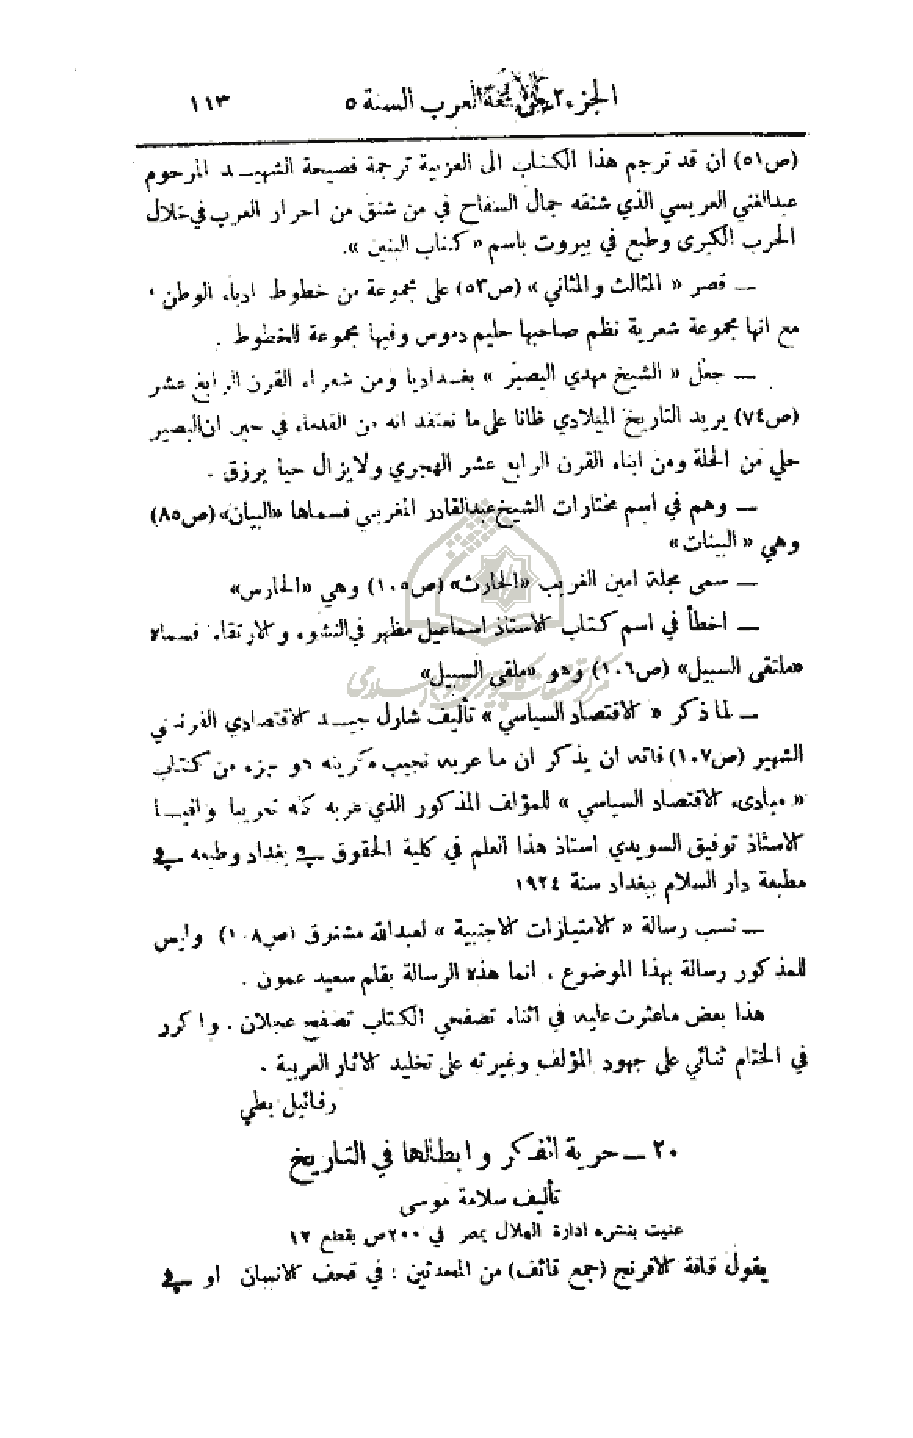 الجزء ٢ من لغة العرب السنة ٥ ١١٣
(ص٥١) ان قد ترجم هذا الكتاب الى العربية ترجمة فصيحة الشهيد المرحوم
عبدالغني العريسي الذي شنقه جمال السفاح في من شنق من احرار العرب في خلال
الحرب الكبرى وطبع في بيروت باسم « كتاب البنين ».
— قصر « المثالث والمثاني » (ص٥٣) على مجموعة من خطوط ادباء الوطن
مع انها مجموعة شعرية نظم صاحبها حليم دموس وفيها مجموعة للخطوط .
— جعل « الشيخ مهدي البصير » بغداديا ومن شعراء القرن الرابع عشر
(ص٧٤) يريد التاريخ الميلادي ظانا على ما نعتقد انه من القدماء في حين ان البصير
حلي من الحلة ومن ابناء القرن الرابع عشر الهجري ولا يزال حيا يرزق .
— وهم في اسم مختارات الشيخ عبدالقادر المغربي فسماها «البيان» (ص٨٥)
وهي « البينات »
— سمى مجلة امين الغريب «الحارث» (ص١٠٥) وهي «الحارس»
— اخطأ في اسم كتاب الاستاذ اسماعيل مظهر في النشوء والارتقاء فسماه
«ملتقى السبيل» (ص١٠٦) وهو «ملقى السبيل»
— لما ذكر « الاقتصاد السياسي » تأليف شارل جيد الاقتصادي الفرنسي
الشهير (ص١٠٧) فاته ان يذكر ان ما عربه نجيب هو جزء من كتاب
« مبادىء الاقتصاد السياسي » للمؤلف المذكور الذي عربه كله تعريبا وافيا
الاستاذ توفيق السويدي استاذ هذا العلم في كلية الحقوق في بغداد وطبعه في
مطبعة دار السلام ببغداد سنة ١٩٢٤
— نسب رسالة « الامتيازات الاجنبية » لعبدالله مشنوق (ص١٠٨) وليس
للمذكور رسالة بهذا الموضوع . انما هذه الرسالة بقلم سعيد عمون .
هذا بعض ما عثرت عليه في اثناء تصفحي الكتاب تصفح عجلان . واكرر
في الختام ثنائي على جهود المؤلف وغيرته على تخليد الاثار العربية .
رفائيل بطي
٢٠ — حرية الفكر وابطالها في التاريخ
تأليف سلامة موسى
عنيت بنشره ادارة الهلال بمصر في ٢٠٠ص بقطع ١٢
يقول قافة الافرنج (جمع قائف) من المحدثين : في قحف الانسان او في